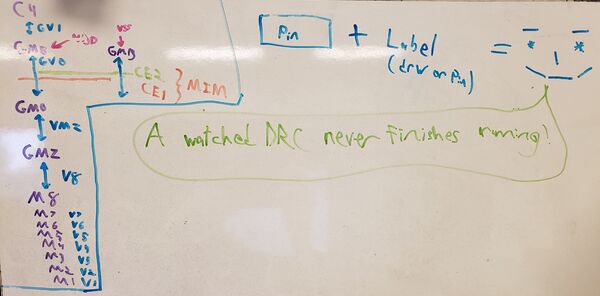 C4
GV1
GMB VDD
VSS
GMB
GV0
CE2
CE1 } MIM
GM0
VMZ
GMZ
V8
M8
M7 V7
M6 V6
M5 V5
M4 V4
M3 V3
M2 V2
M1 V1
Pin + Label =
(drw or pin)
A watched DRC never finishes running!